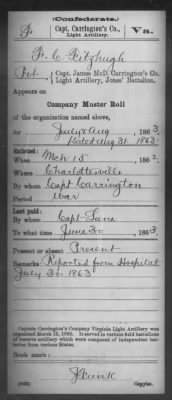 (Confederate.)
F. | Capt. Carrington's Co., Light Artillery. | Va.
F. C. Fitzhugh
Pvt., Capt. James McD. Carrington's Co. Light Artillery, Jones' Battalion.
Appears on
Company Muster Roll
of the organization named above,
for July & Aug, 1863.
Dated Aug 31. 1863.
Enlisted:
When Mch 15, 1862.
Where Charlottesville
By whom Capt Carrington
Period War
Last paid:
By whom Capt Lane
To what time June 30, 1863.
Present or absent Present
Remarks: Reported from Hospital
July 30. 1863
Captain Carrington's Company Virginia Light Artillery was
organized March 15, 1862. It served in various field battalions
of reserve artillery which were composed of independent batteries from various States.
Book mark:
Copyist.